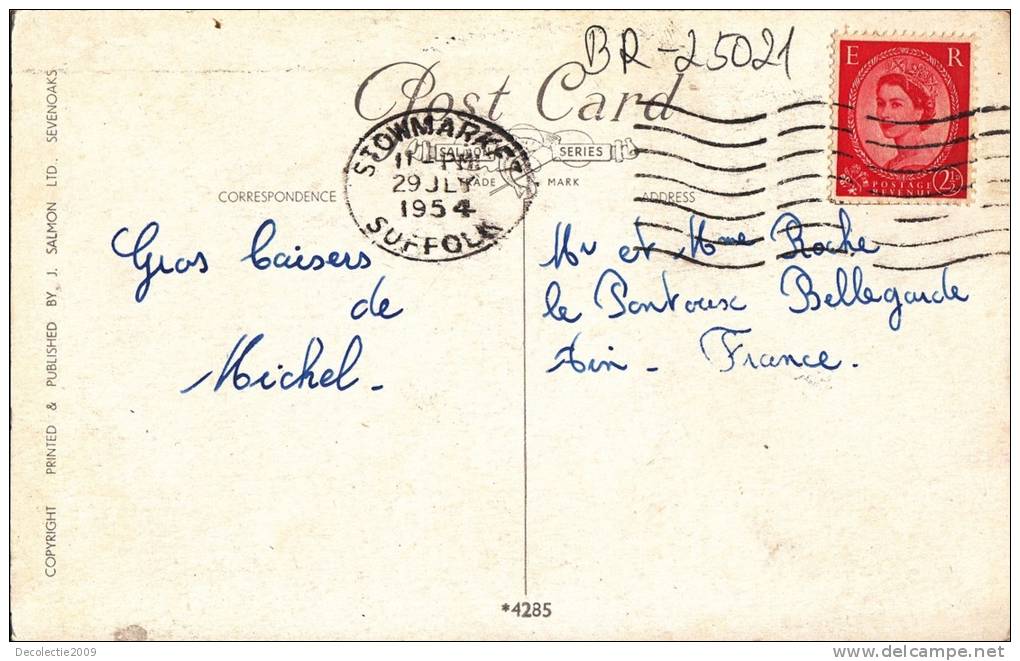 BR-25021
Post Card
SALMON SERIES
TRADE MARK
CORRESPONDENCE
ADDRESS
STOWMARKET
11 - PM
29 JLY
1954
SUFFOLK
E R
POSTAGE
2½
Gros baisers
de
Michel -
Mr et Mme Roche
le Pontoux Bellegarde
Ain - France.
COPYRIGHT PRINTED & PUBLISHED BY J. SALMON LTD. SEVENOAKS
*4285
Decolectie2009
www.delcampe.net